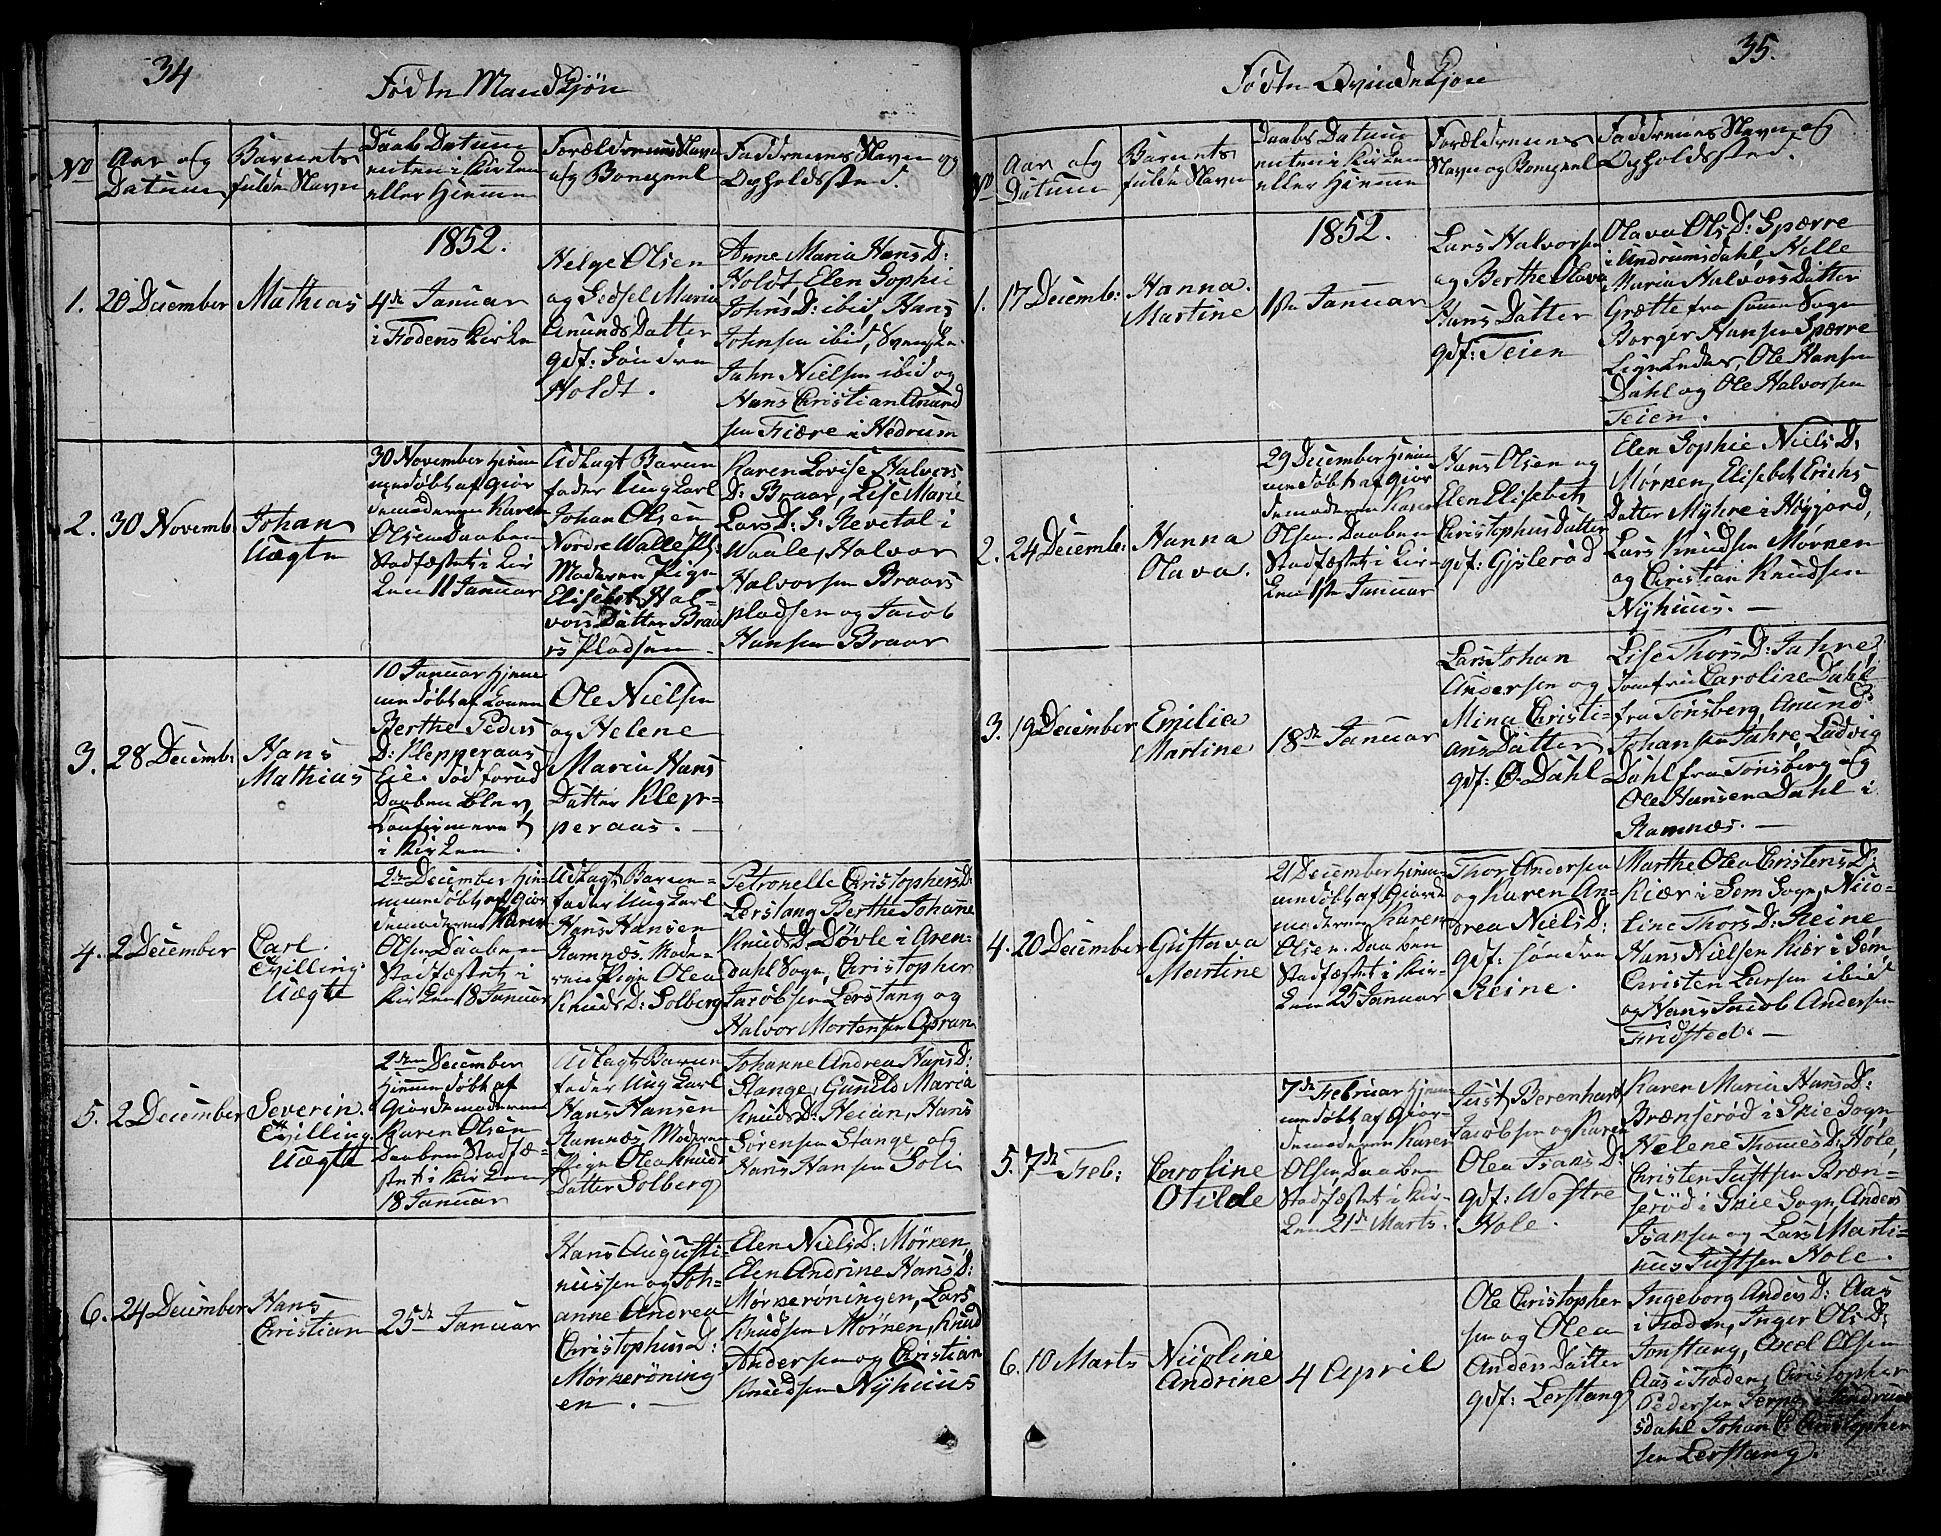 34
Fødte Mandkjön
No
Aar og
Datum
Barnets
fulde Navn
Daabs Datum
enten i Kirken
eller Hjemme
Forældrenes Navn
og Bopæl
Faddrenes Navn og
Opholdssted.
1852.
1.
20 December
Mathias
4de Januar
i Fodens Kirke
Helge Olsen
og Gidsel Maria
Anunds Datter
gdf: Söndre
Holdt.
Anne Maria Hans D:
Holdt, Elen Sophie
Johns D: ibid, Hans
Johnsen ibid, Svenske
Jahn Nielsen ibid og
Hans Christian Anund
sen Fiære i Hedrum
2.
30 Novemb:
Johan
Uægte
30 November Hjem
medöbt af Gjor
demoderen Karen
Olsen Daaben
Stadfæstet i Kir
ken 11 Januar
Udlagt Barne
fader Ung Karl
Johan Olsen
Nordre Walle Pl:
Moderen Pige
Elisebet Hal-
vors Datter Braa
rs Pladsen.
Karen Lovise Halvors
D: Braar, Lise Marie
Lars D: G: Revetal i
Waale, Halvor
Halvorsen Braars
pladsen og Jacob
Hansen Braar
3.
28 Decemb:
Hans
Mathias
10 Januar Hjem
medöbt af Konen
Berthe Peders
D: Klepperaas
Eie. Död forud
Daaben blev
Confirmeret
i Kirken.
Ole Nielsen
og Helene
Maria Hans
Datter Klep-
peraas.
4.
2 December
Carl.
Tvilling.
Uægte
2den December Hjem-
medöbt af Gjor
demoderen Karen
Olsen Daaben
Stadfæstet i
Kirken 18 Januar
Udlagt Barne-
fader Ung Karl
Hans Hansen
Ramnæs. Mode-
ren Pige Olea
Knuds D: Solberg
Petronelle Christophers D:
Lerstang Berthe Johane
Knuds D: Døvle i Aren-
dahl Sogn, Christopher
Jacobsen Lerstang og
Halvor Mortensen Gran
5.
2 December
Severin.
Tvilling.
Uægte
2den December
Hjemmedöbt af
Gjordemoderen
Karen Olsen
Daaben Stadfæ-
stet i Kirken
18 Januar
Udlagt Barne
fader Ung Karl
Hans Hansen
Ramnæs Moderen
Pige Olea Knuds
Datter Solberg
Johanne Andrea Hans D:
Stange, Gunild Maria
Knuds D: Heian, Hans
Sörensen Stange og
Hans Hansen Soli
6.
24 December
Hans
Christian
25de Januar
Hans Augusti-
nussen og Joh-
anne Andrea
Christophus D:
Mörkeröning
en.
Elen Niels D: Mörken,
Elen Andrine Hans D:
Mörkeröningen, Lars
Knudsen Mörken, Knud
Andersen og Christian
Knudsen Nyhuus
35.
Fødte Qvindekjön
No
Aar og
Datum
Barnets
fulde Navn
Daabs Datum
enten i Kirken
eller Hjemme
Forældrenes
Navn og Bopæl
Faddrenes Navn og
Opholdssted.
1852.
1.
17 Decemb:
Hanna.
Martine
1ste Januar
Lars Halvorsen
og Berthe Olava
Hans Datter
gdf: Teien
Olava Ols D: Spærre
i Undrumsdahl, Hille
Maria Halvors Datter
Grætte fra samme Sogn
Borger Hansen Spærre
Ligeledes, Ole Hansen
Dahl og Ole Halvorsen
Teien.
2.
24 Decemb:
Hanna
Olava.
29 December Hjem
medöbt af Gjor
demoderen Karen
Olsen. Daaben
Stadfæstet i Kir-
ken 1ste Januar
Hans Olsen og
Elen Elisebet
Christophus Datter
gdf: Gjslerød
Elen Sophie Niels D:
Mörken, Elisebet Erichs
Datter Myhre i Höyjord,
Lars Knudsen Mörken
og Christian Knudsen
Nyhuus.
3.
19 December
Emilia
Martine
18de Januar
Lars Johan
Andersen og
Mina Christi-
ans Datter
gdf: Ö. Dahl
Lise Thors D: Jahre,
Jomfru Caroline Dahl
fra Tönsberg, Anund
Johansen Jahre, Ludvig
Dahl fra Tönsberg og
Ole Hansen Dahl i
Ramnæs.
4.
20 December
Gustava
Martine
21 December Hjem-
medöbt af Gjorde
moderen Karen
Olsen. Daaben
Stadfæstet i Kir-
ken 25 Januar
Thor Andersen
og Karen An-
drea Niels D:
gdf: Söndre
Reine.
Marthe Olea Christens D:
Kiær i Sem Sogn, Nico-
line Thors D: Reine
Hans Nielsen Kiær i Sem,
Christen Larsen ibid
og Hans Jacob Andersen
Fridsted.
5.
7de Feb:
Caroline
Otilde
7de Februar Hjem-
medöbt af Gjor-
demoderen Karen
Olsen, Daaben
Stadfæstet i Kir-
ken 21de Marts.
Just Berenhart
Jacobsen og Karen
Olea Isaks D:
gdf: Westre
Hole.
Karen Maria Hans D:
Brænseröd i Skie Sogn
Helene Thomes D: Hole,
Christen Justsen Bræn-
seröd i Skie Sogn, Anders
Isaksen og Lars Marti-
nus Justsen Hole.
6.
10 Marts
Nicoline
Andrine
4 April
Ole Christopher
sen og Olea
Anders Datter
gdf: Lerstang
Ingeborg Anders D: Aas
i Foden, Inger Ols D:
Jonstang, Axel Olsen
Aas i Foden, Christopher
Pedersen Serpe i Undrum
sdahl Johan C: Christopher
sen Lerstang.